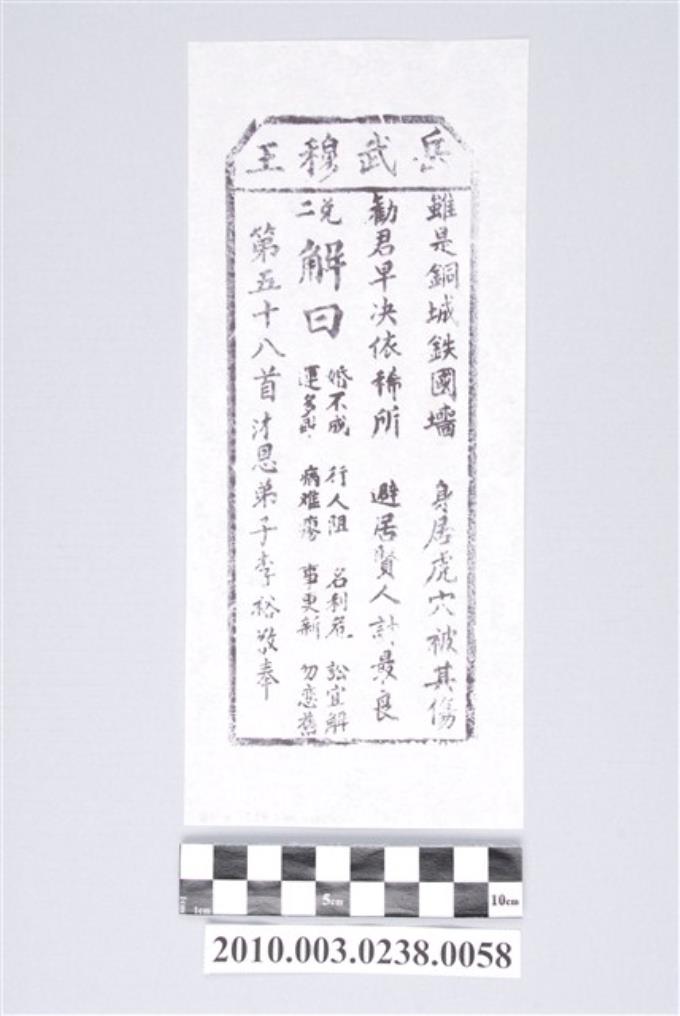 岳武穆王
雖是銅城鉄國墻 身居虎穴被其傷
勸君早决依稀所 避居賢人計最良
兌二 解曰 婚不成 行人阻 名利危 訟宜解
運多 病难瘳 事更新 勿恋舊
第五十八首 沐恩弟子李裕敬奉
1cm 5cm 10cm
2010.003.0238.0058